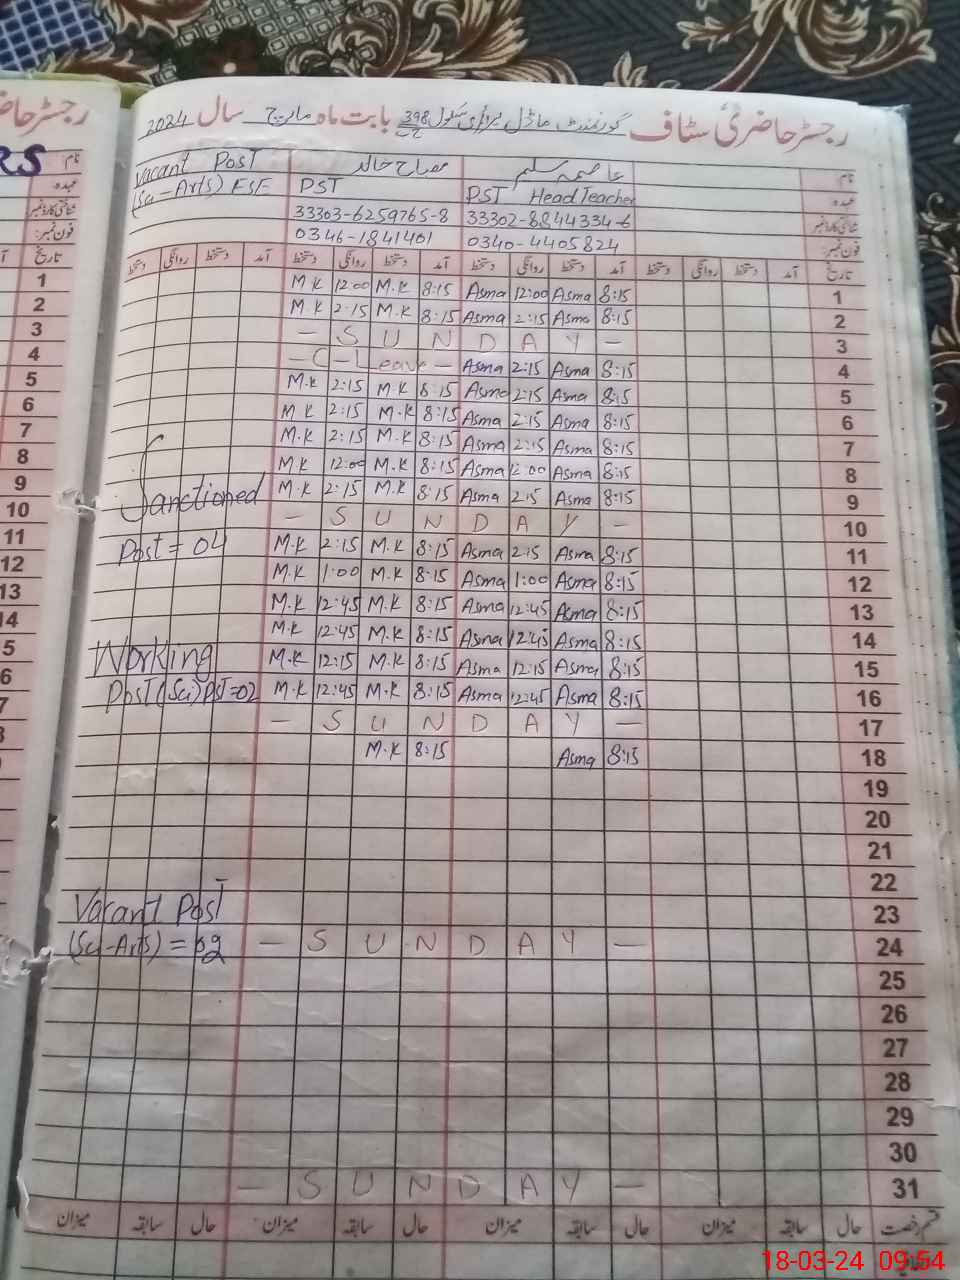 رجسٹر حاضری سٹاف گورنمنٹ ماڈل پرائمری سکول 398 بابت ماہ مارچ سال 2024
رجسٹر حاض
RS
نام عاصمہ سلیم مصباح خالد Vacant Post
عہدہ PST Head Teacher PST (Sci-Arts) ESE
شناختی کارڈ نمبر 33302-8844334-6 33303-6259765-8
فون نمبر: 0340-4405824 0346-1841401
تاریخ آمد دستخط روانگی دستخط آمد دستخط روانگی دستخط آمد دستخط روانگی دستخط آمد دستخط روانگی دستخط
M.K 12:00 M.K 8:15 Asma 12:00 Asma 8:15 1
M.K 2:15 M.K 8:15 Asma 2:15 Asma 8:15 2
- S U N D A Y - 3
- C - Leave - Asma 2:15 Asma 8:15 4
M.K 2:15 M.K 8:15 Asma 2:15 Asma 8:15 5
M.K 2:15 M.K 8:15 Asma 2:15 Asma 8:15 6
M.K 2:15 M.K 8:15 Asma 2:15 Asma 8:15 7
M.K 12:00 M.K 8:15 Asma 12:00 Asma 8:15 8
Sanctioned M.K 2:15 M.K 8:15 Asma 2:15 Asma 8:15 9
- S U N D A Y - 10
Post = 04 M.K 2:15 M.K 8:15 Asma 2:15 Asma 8:15 11
M.K 1:00 M.K 8:15 Asma 1:00 Asma 8:15 12
M.K 12:45 M.K 8:15 Asma 12:45 Asma 8:15 13
M.K 12:45 M.K 8:15 Asma 12:45 Asma 8:15 14
Working M.K 12:15 M.K 8:15 Asma 12:15 Asma 8:15 15
Post (Sci) PST=02 M.K 12:45 M.K 8:15 Asma 12:45 Asma 8:15 16
- S U N D A Y - 17
M.K 8:15 Asma 8:15 18
19
20
21
22
Vacant Post 23
(Sci-Arts) = 02 - S U N D A Y - 24
25
26
27
28
29
30
- S U N D A Y - 31
قسم رخصت حال سابقہ میزان حال سابقہ میزان حال سابقہ میزان حال سابقہ میزان
18-03-24 09:54